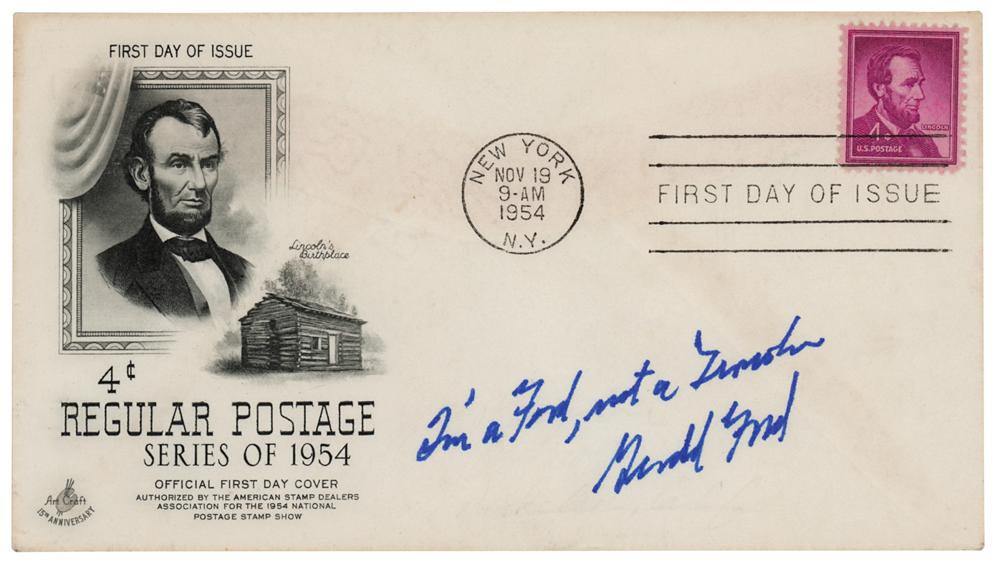 FIRST DAY OF ISSUE
Lincoln's
Birthplace
4¢
REGULAR POSTAGE
SERIES OF 1954
OFFICIAL FIRST DAY COVER
AUTHORIZED BY THE AMERICAN STAMP DEALERS
ASSOCIATION FOR THE 1954 NATIONAL
POSTAGE STAMP SHOW
Art Craft
15TH ANNIVERSARY
NEW YORK
NOV 19
9-AM
1954
N.Y.
LINCOLN
4¢
U.S. POSTAGE
FIRST DAY OF ISSUE
I'm a Ford, not a Lincoln
Gerald Ford